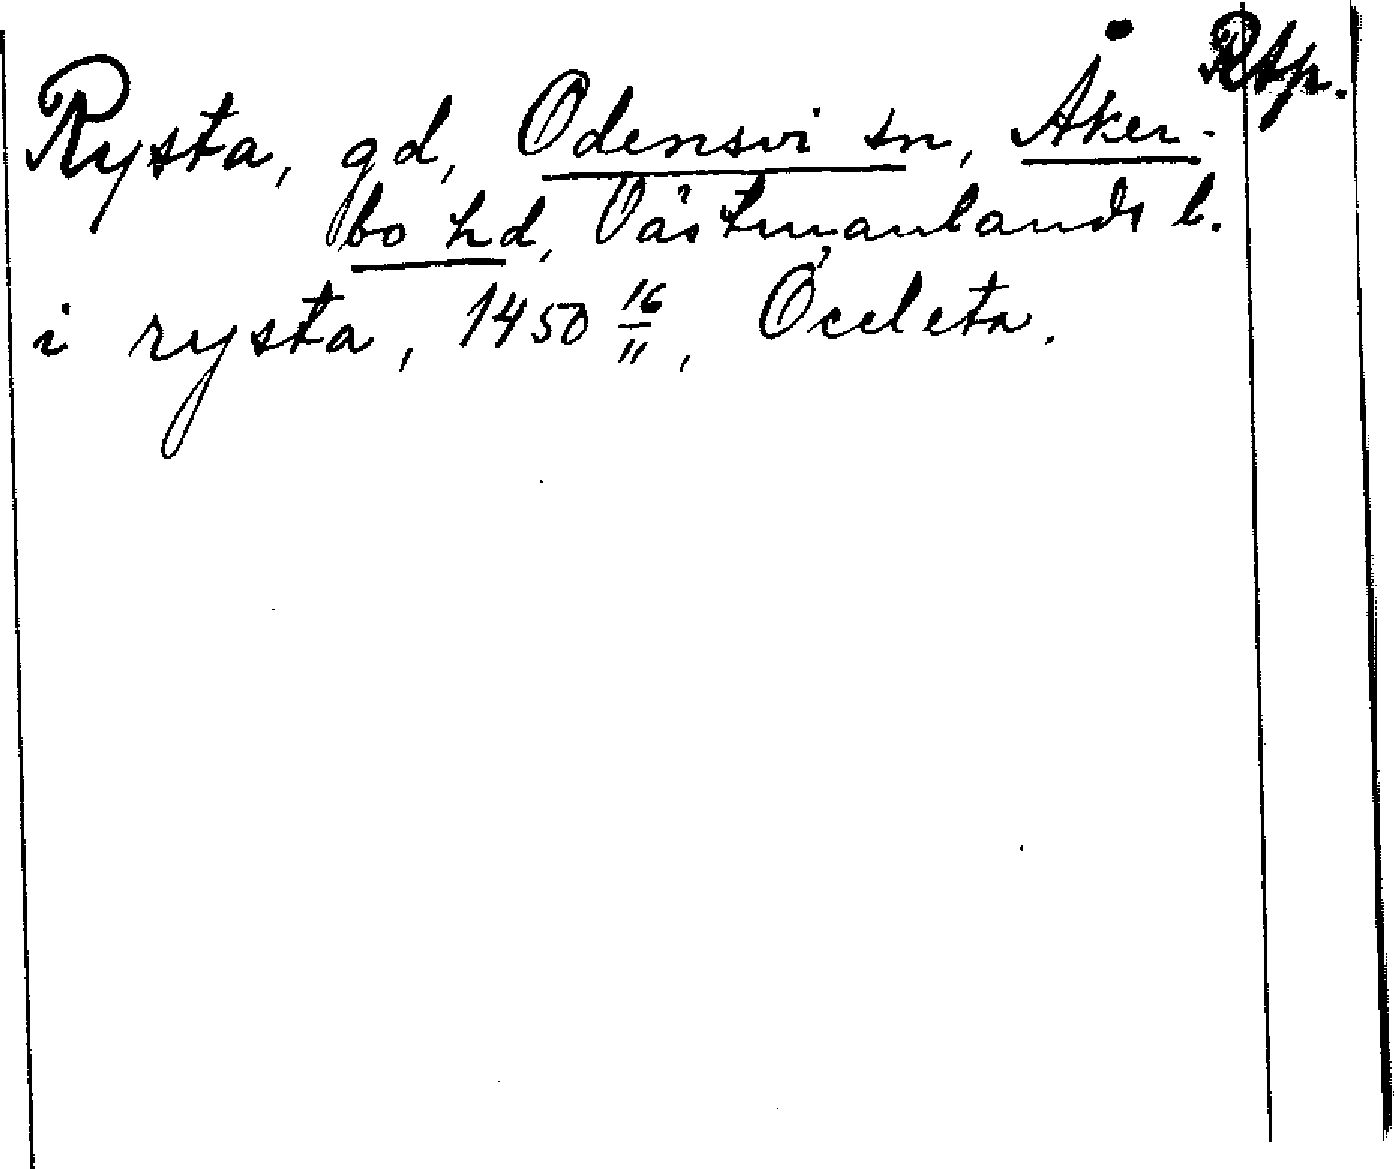 Rtp.
Rysta, gd, Odensvi sn, Åker-
bo hd, Västmanlands l.
i rysta, 1450 16/11, Oceleta.